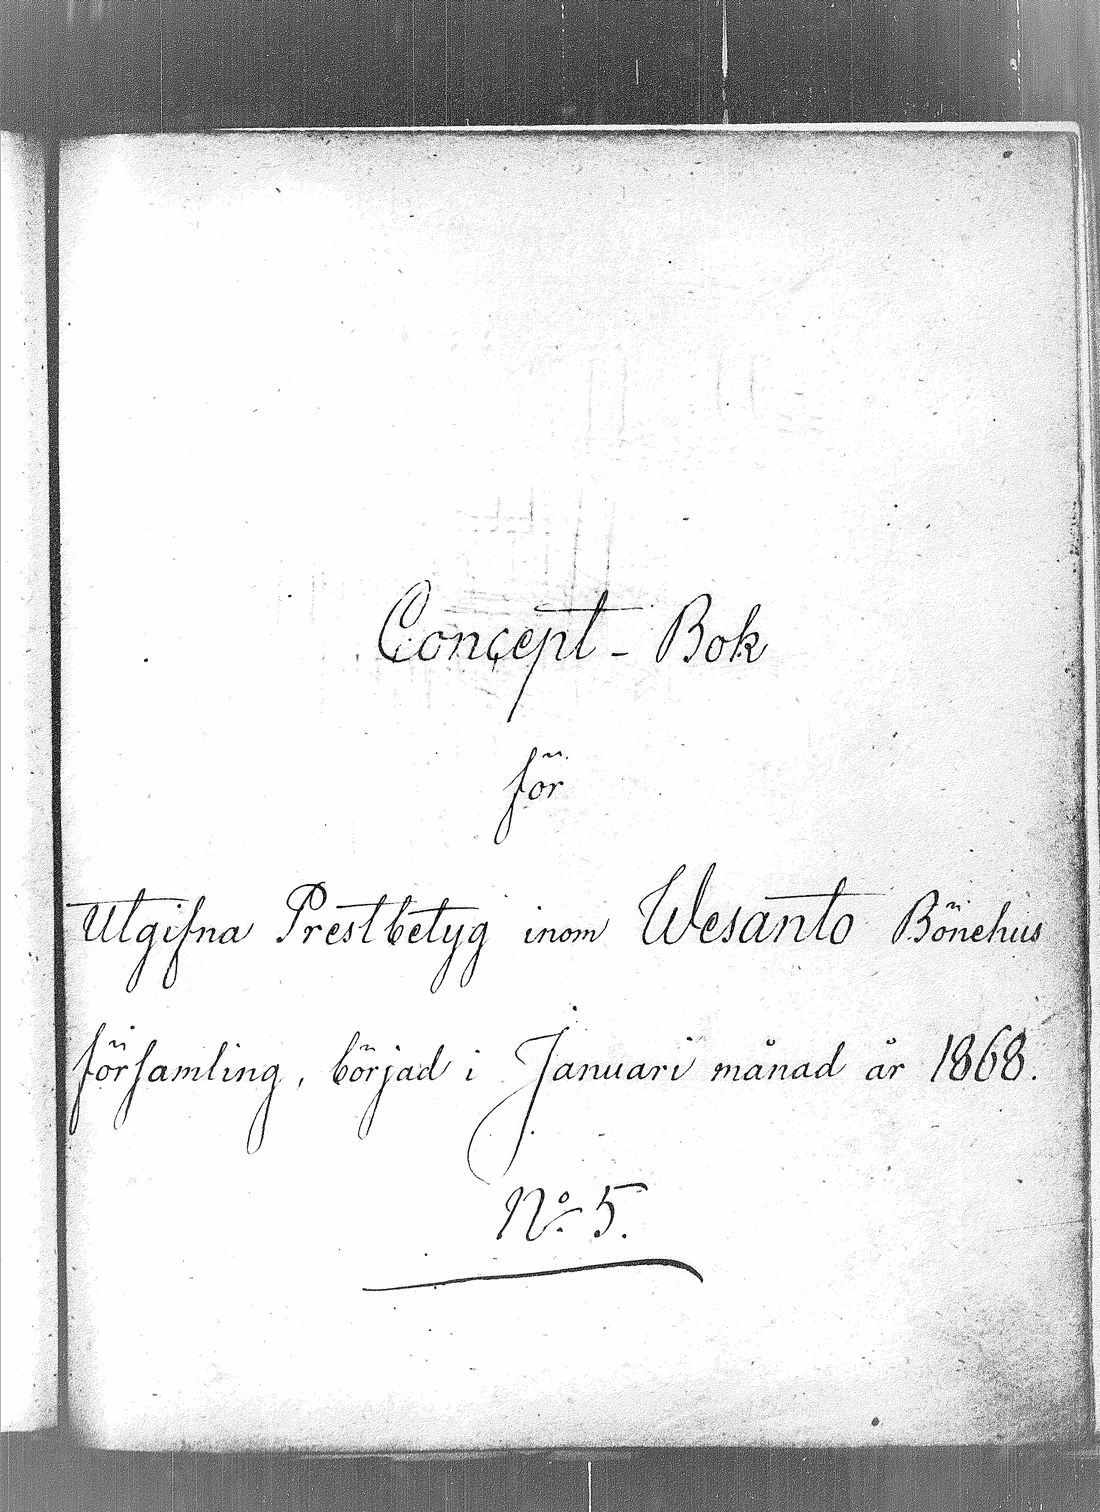 Concept - Bok
för
Utgifna Prestbetyg inom Wesanto Bönehus
församling, börjad i Januari månad år 1868.
No 5.